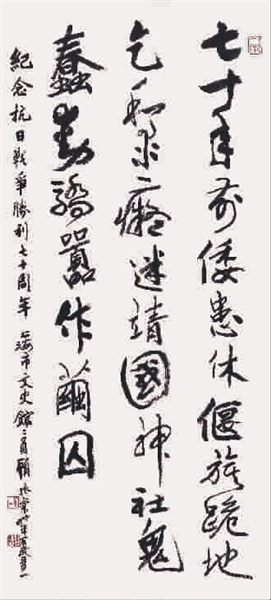 七十年前倭患休偃旗跪地
乞和求癡迷靖國神社鬼
蠢動驕囂作繭囚
紀念抗日戰爭勝利七十周年 上海市文史館々員顧振樂時年百歲